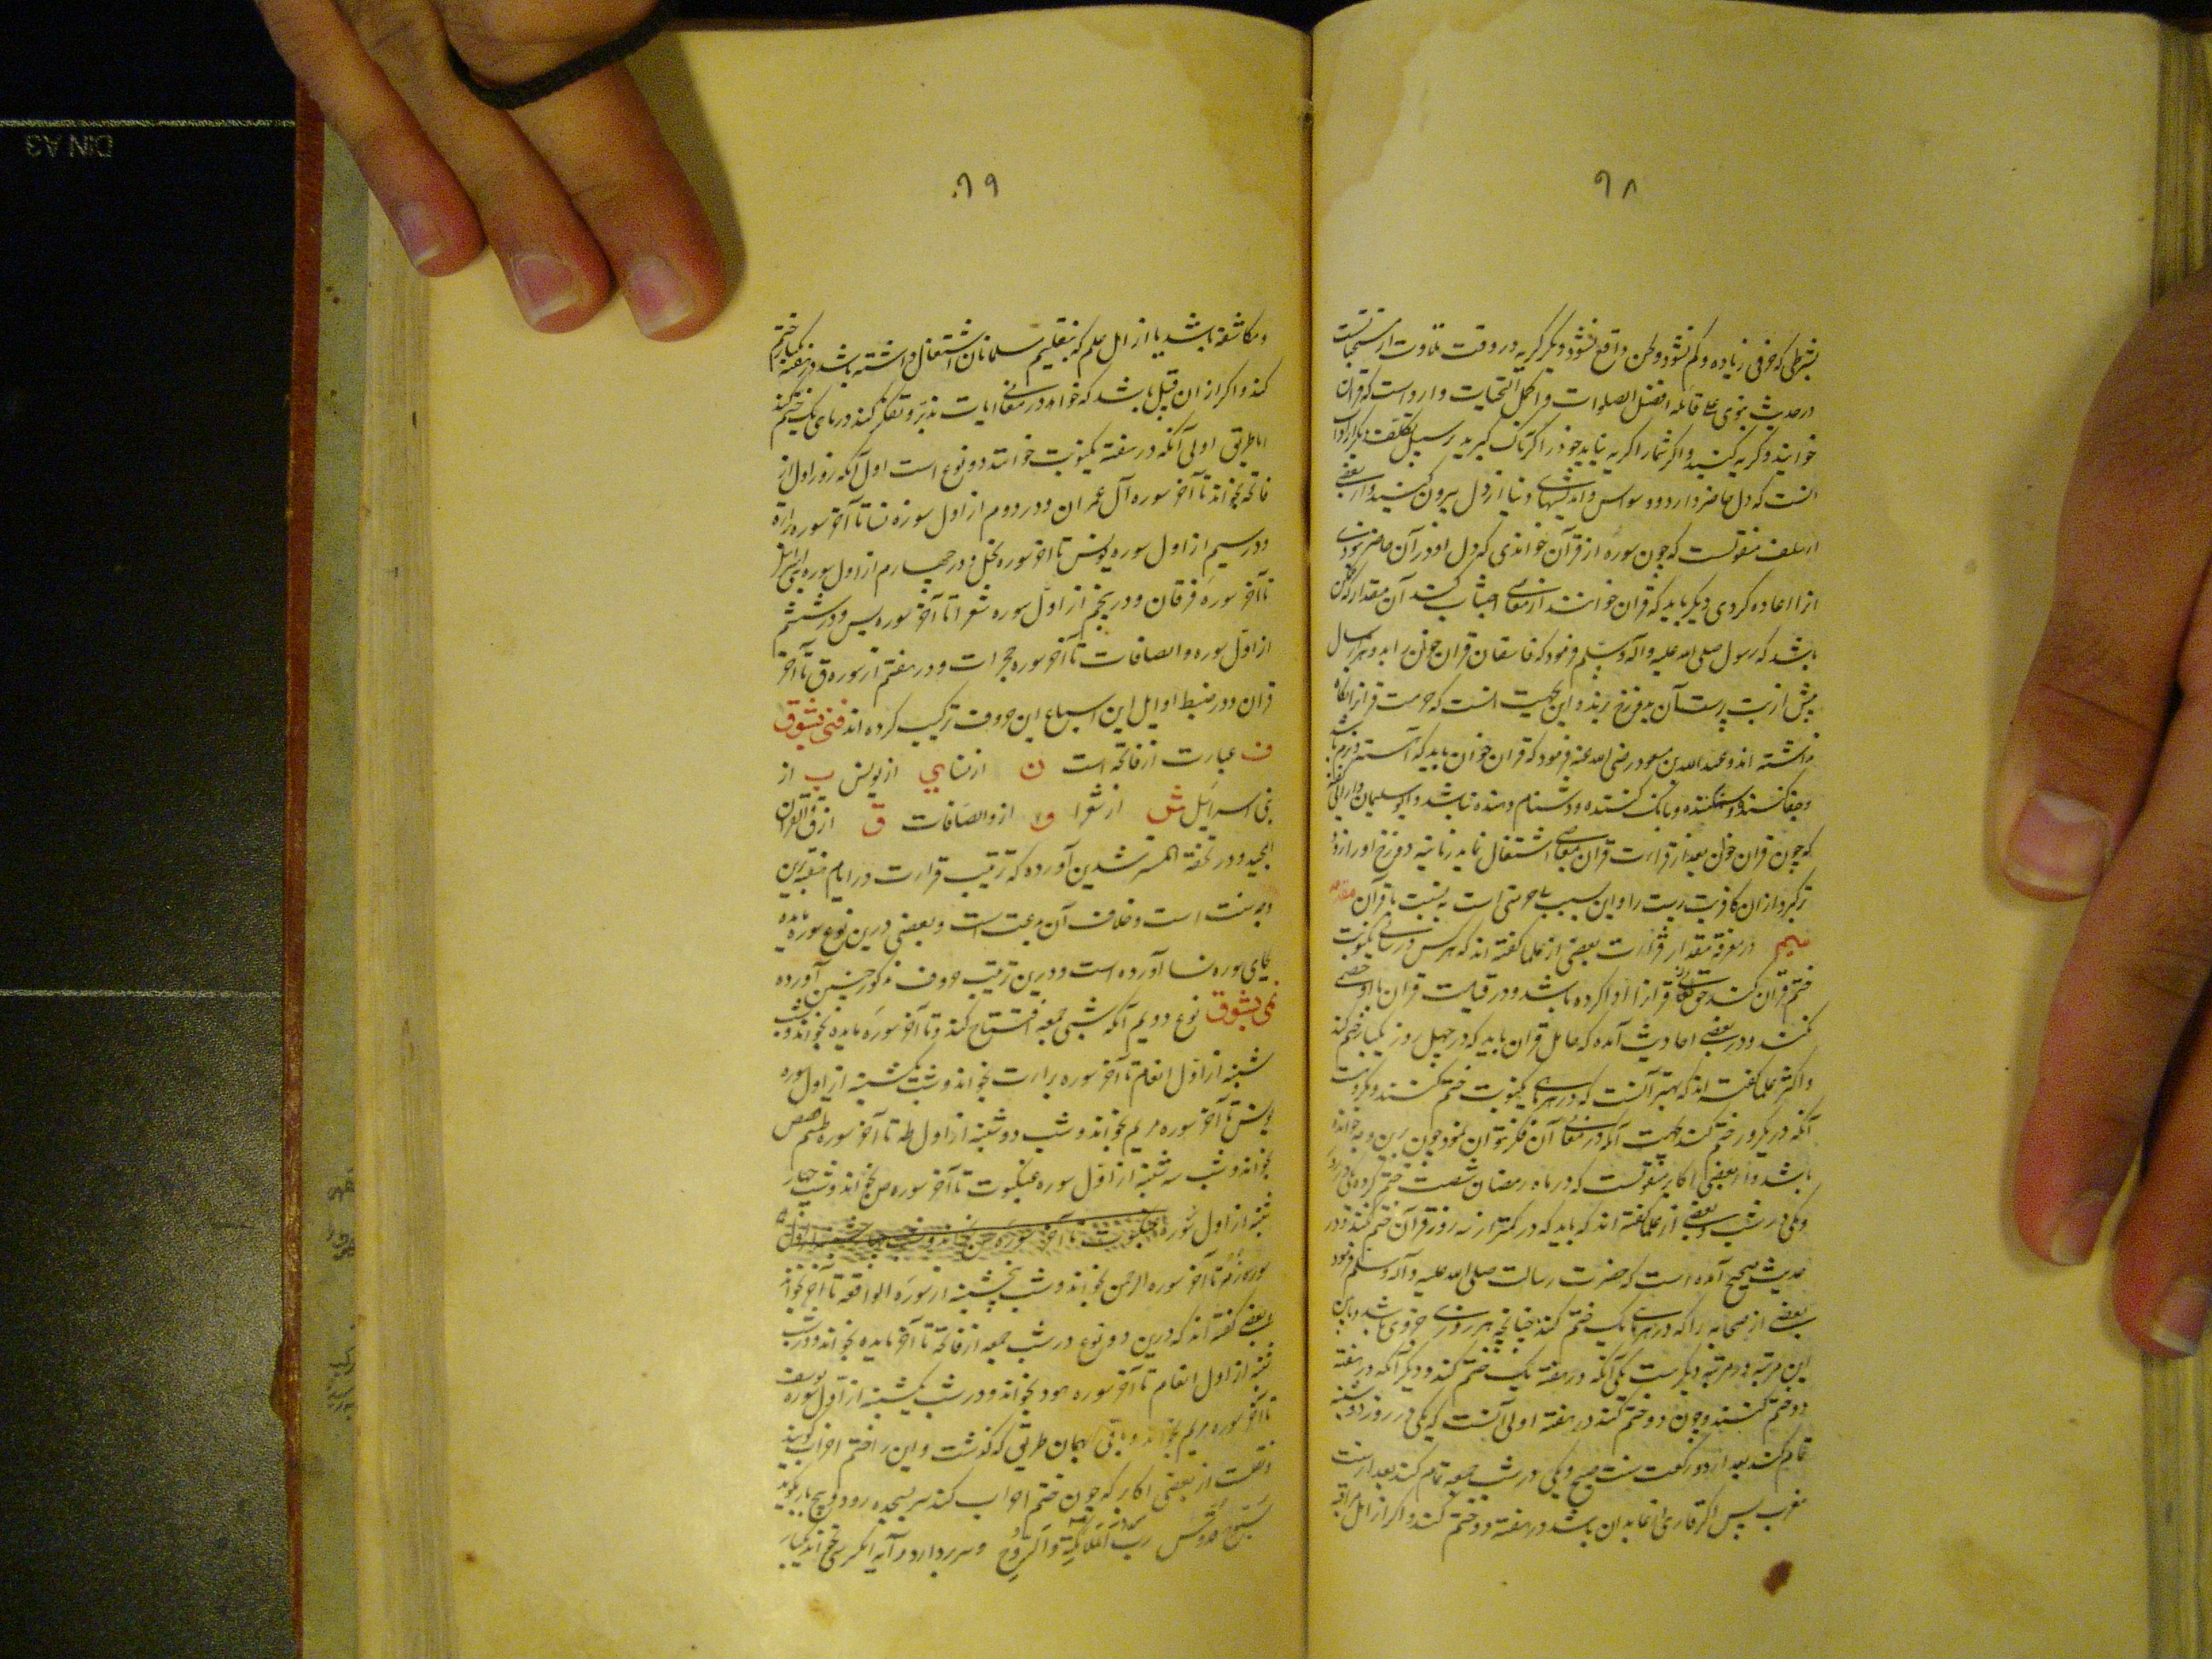 ۹۸
بشرطی که حرفی زیاده و کم نشود و لحن واقع نشود و دیگر گریه در وقت تلاوت از مستحباتست
در حدیث نبوی علی قائله افضل الصلوات و اکمل التحیات وارد است که قران
خوانید و گریه کنید و اگر شما را گریه نیاید خود را
انست که دل حاضر دارد و وسواس و اندیشهای دنیا از دل بیرون کنید و از بعضی
از سلف منقولست که چون سوره از قرآن خواندی که دل او در آن حاضر نبودی
انرا اعاده کردی دیگر باید که قرآن خوانند از معاصی اجتناب کنند آن مقدار که ممکن
باشد که رسول صلی الله علیه و آله و سلم فرمود که فاسقان قران خوان را
پیش از بت پرستان بدوزخ برند و این بجهت انست که حرمت قرانرا نگاه
نداشته اند و عبدالله بن مسعود رضی الله عنه فرمود که قران خوان باید که آهسته و نرم باشد
و جفا کننده و ستیزنده و بانک کننده و دشنام دهنده نباشد و ابو سلیمان دارانی گفته
که چون قران خوان بعد از قراءت قران بمعاصی اشتغال نماید زبانیه دوزخ او را زودتر
گیرد از ان کافر بت پرست را و این بسبب بی حرمتی است به نسبت با قرآن مقدمه
پنجم در معرفة مقدار قراءت بعضی از علما گفته اند که هر کس در سالی یکنوبت
ختم قرآن کند حق قرانرا ادا کرده باشد و در قیامت قران با او خصمی
نکند و در بعضی احادیث آمده که حامل قران باید که در چهل روز یکبار ختم کند
و اکثر علما گفته اند که بهتر آنست که در هر ماهی یکنوبت ختم کنند و مکروهست
آنکه در یکروز ختم کند بجهت آنکه در معانی آن فکر نتوان نمود چون برین وجه خوانده
باشد و از بعضی اکابر منقولست که در ماه رمضان شصت ختم کرده یکی در روز
و یکی در شب و بعضی از علما گفته اند که باید که در کمتر از سه روز قرآن ختم نکند و در
حدیث صحیح آمده است که حضرت رسالت صلی الله علیه و آله و سلم فرمود
بعضی از صحابه را که در هر ماه یک ختم کند چنانچه هر روزی جزوی باشد و میان
این مرتبه دو مرتبه دیگرست یکی آنکه در هفته یک ختم کند و دیگر آنکه در هفته
دو ختم کنند و چون دو ختم کند در هفته اولی آنست که یکی در روز دوشنبه
تمام کند بعد از دو رکعت سنت صبح و یکی در شب جمعه تمام کند بعد از سنت
مغرب پس اگر قاری از عابدان باشد در هفته دو ختم کند و اگر از اهل مراقبه
۹۹
و مکاشفه باشد یا از اهل علم که بتعلیم مسلمانان اشتغال داشته باشد در هفته یکبار ختم
کند و اگر از ان قبیل باشد که خواهد در معانی ایات تدبر و تفکر کند در ماهی یک ختم کند
اما طریق اولی آنکه در هفته یکنوبت خوانند دو نوع است اول آنکه روز اول از
فاتحه بخواند تا آخر سوره آل عمران و در دوم از اول سوره نسا تا آخر سوره براة
و در سیم از اول سوره یونس تا اخر سوره نحل و در چهارم از اول سوره بنی اسرائیل
تا آخر سوره فرقان و در پنجم از اول سوره شعرا تا آخر سوره یس و در ششم
از اول سوره والصافات تا آخر سوره حجرات و در هفتم از سوره ق تا آخر
قران و در ضبط اوایل این اسباع این حروف ترکیب کرده اند فنی بشوق
ف عبارت از فاتحه است ن از نسا ی از یونس ب از
بنی اسرائیل ش از شعرا و از والصافات ق از ق والقران
المجید و در تحفة المسترشدین آورده که ترتیب قراءت در ایام هفته برین
وجه سنت است و خلاف آن بدعت است و بعضی درین نوع سوره مایده
بجای سوره نسا آورده است و درین ترتیب حروف مذکور چنین آورده
فمی بشوق نوع دویم آنکه شب جمعه افتتاح کند و تا آخر سوره مایده بخواند و شب
شنبه از اول انعام تا آخر سوره براءت بخواند و شب یکشنبه از اول سوره
یونس تا آخر سوره مریم بخواند و شب دوشنبه از اول طه تا آخر سوره طسم قصص
بخواند و شب سه شنبه از اول سوره عنکبوت تا آخر سوره ص بخواند و شب چهار
شنبه از اول سوره
سوره زمر تا آخر سوره الرحمن بخواند و شب پنجشنبه از سوره الواقعه تا آخر بخواند
بعضی گفته اند که درین دو نوع در شب جمعه از فاتحه تا آخر مایده بخواند و در شب
شنبه از اول انعام تا آخر سوره هود بخواند و در شب یکشنبه از اول سوره یوسف
تا آخر سوره مریم بخواند و باقی بهمان طریق که گذشت و این را ختم احزاب گویند
و نقلست از بعضی اکابر که چون ختم احزاب کند سر بسجده رود و پنج بار بگوید
سبوح قدوس ربنا و رب الملائکة والروح و سر بردارد و آیه الکرسی بخواند یکبار